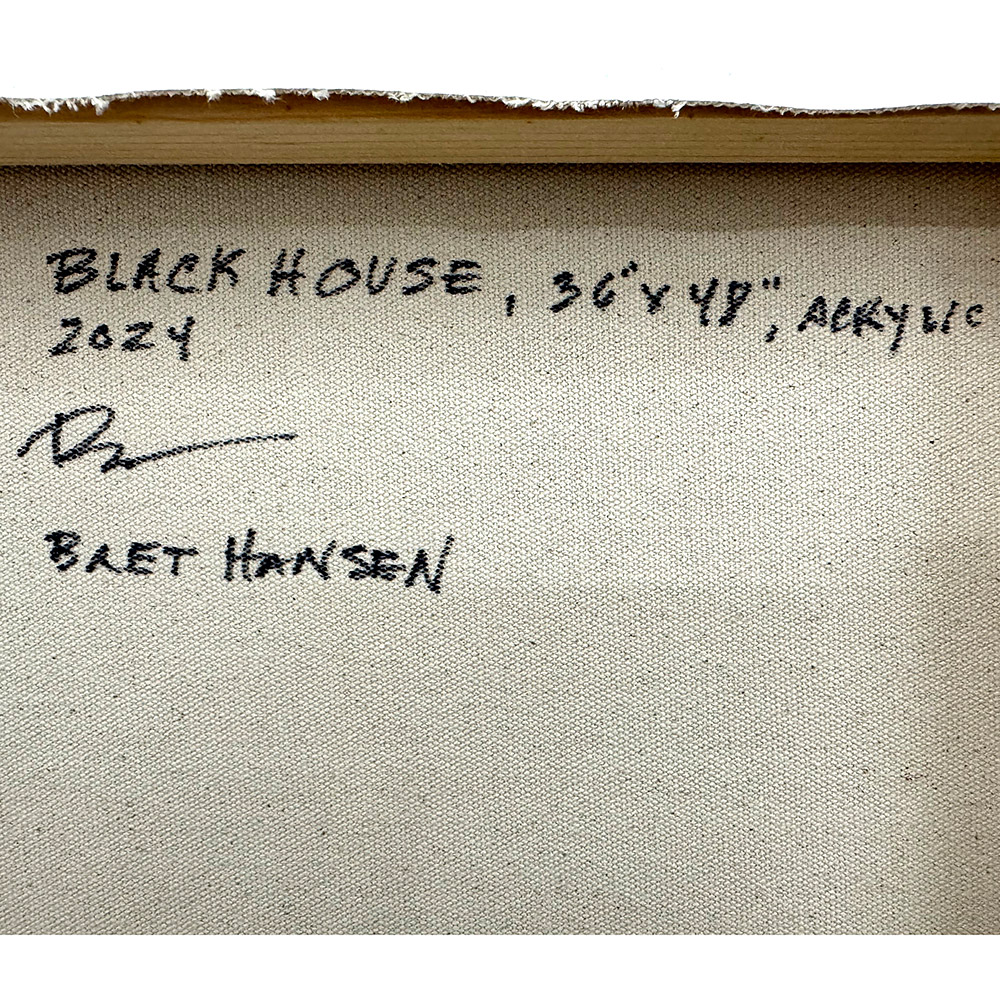 BLACK HOUSE, 36" x 48", ACRYLIC
2024
BRET HANSEN